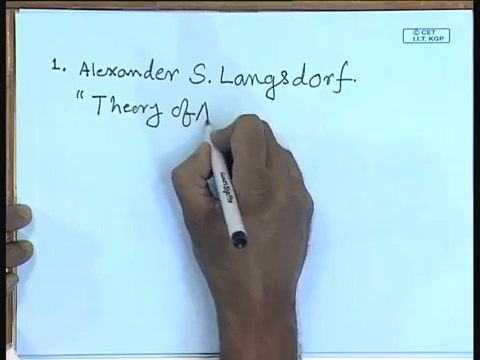 © CET
I.I.T. KGP
1. Alexander S. Langsdorf.
" Theory of